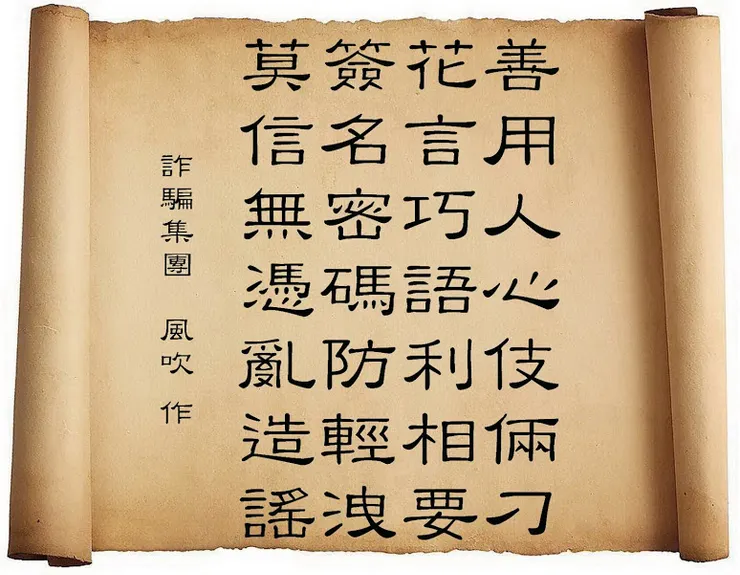 善用人心伎倆刁
花言巧語利相要
簽名密碼防輕洩
莫信無憑亂造謠
詐騙集團 風吹 作